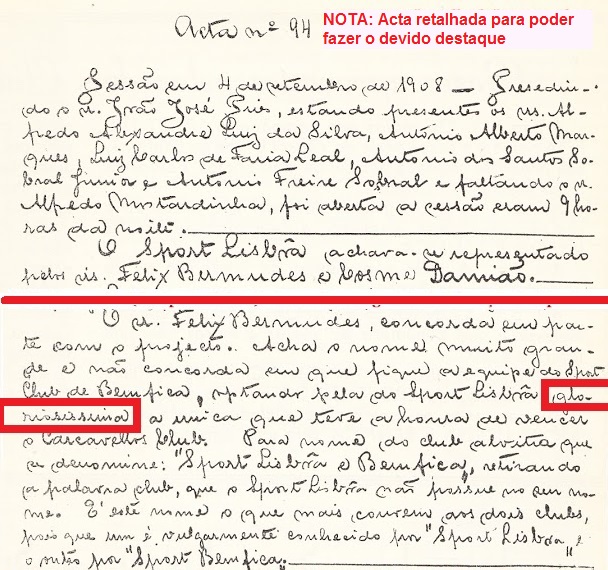 Acta nº 94
NOTA: Acta retalhada para poder
fazer o devido destaque
Sessão em 4 de setembro de 1908 — Presedin-
do o sr. João José Pires, estando presentes os srs. Al-
fredo Alexandre Luiz da Silva, António Alberto Mar-
ques, Luiz Carlos de Faria Leal, Antonio dos Santos So-
bral Junior e Antonio Freire Sobral e faltando o sr.
Alfredo Mostardinha, foi aberta a cessão eram 9 ho-
ras da noite.
O Sport Lisbôa achava-se representado
pelos srs. Felix Bermudes e Cosme Damião.
O sr. Felix Bermudes, concorda em par-
te com o projecto. Acha o nome muito gran-
de e não concorda em que fique a equipe do Sport
Club de Bemfica, optando pela do Sport Lisbôa, glo-
riosissima a unica que teve a honra de vencer
o Carcavellos Club. Para nome do club alvitra que
se denomine: "Sport Lisbôa e Bemfica", retirando
a palavra club, que o Sport Lisbôa não possue no seu no-
me. E' este nome o que mais convem aos dois clubs,
pois que um é vulgarmente conhecido por "Sport Lisbôa" e
o outro por "Sport Bemfica".